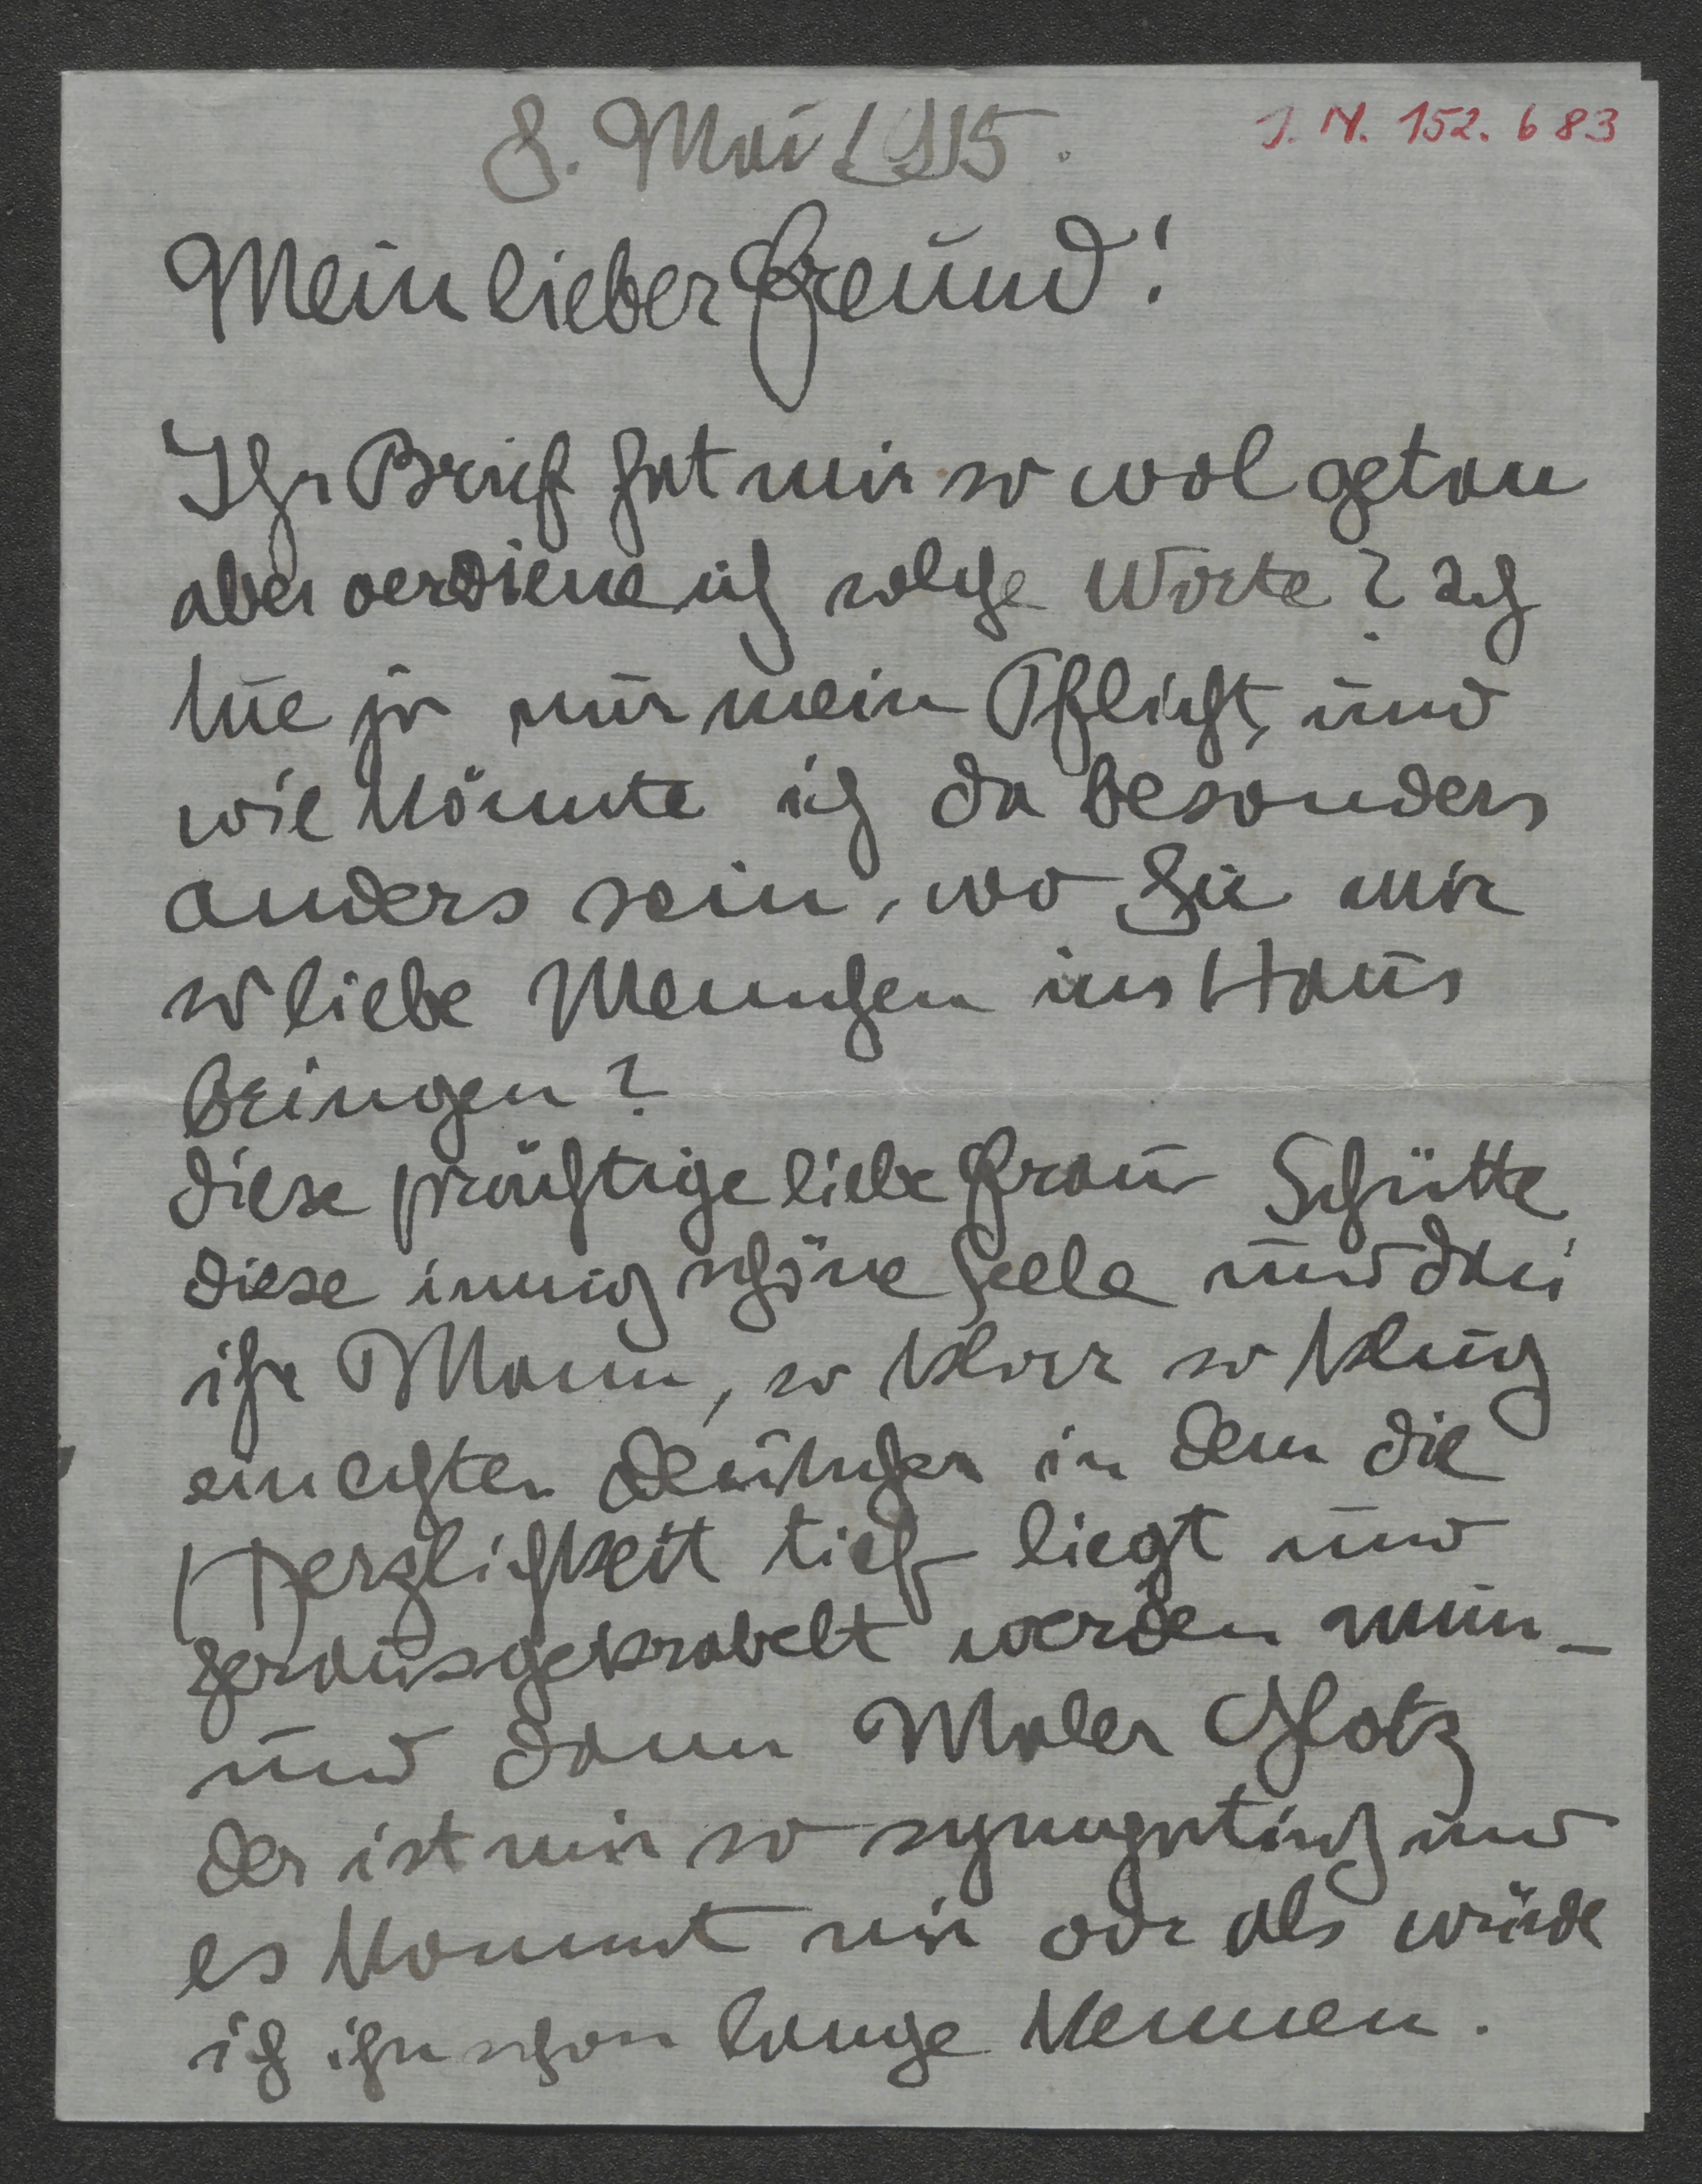 8. Mai 1915.
J. N. 152.683
Mein lieber Freund!
Ihr Brief hat mir so wol getan
aber verdiene ich solche Worte? Ich
tue ja nur mein Pflicht, und
wie könnte ich da besonders
anders sein, wo Sie mir
so liebe Menschen ins Haus
bringen?
diese prächtige liebe Frau Schütte
diese innig schöne Seele und
ihr Mann, so klar so klug
ein echter deutscher in dem die
Herzlichkeit tief liegt und
herausgekrabelt werden
und dann Maler Glotz
der ist mir so sympatisch und
es kommt mir vor als würde
ich ihn schon lange kennen.